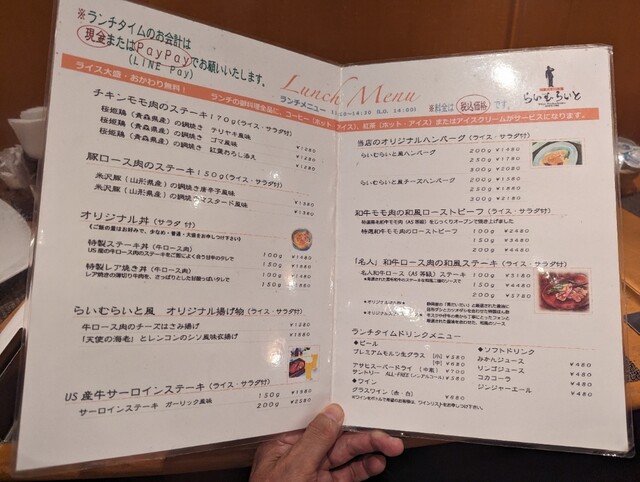 ※ランチタイムのお会計は
現金またはPayPay
(LINE Pay)
でお願いいたします。
Lunch Menu
ランチメニュー 11:30~14:30 (L.O. 14:00)
※料金は税込価格です。
らいむらいと
ライス大盛・おかわり無料！
ランチの御料理全品に、コーヒー(ホット・アイス)、紅茶(ホット・アイス)またはアイスクリームがサービスになります。
チキンモモ肉のステーキ170g(ライス・サラダ付)
桜姫鶏(青森県産)の鋼焼き テリヤキ風味 ¥1280
桜姫鶏(青森県産)の鋼焼き ゴマ風味 ¥1280
桜姫鶏(青森県産)の鋼焼き 紅葉おろし添え ¥1280
豚ロース肉のステーキ150g(ライス・サラダ付)
米沢豚(山形県産)の鋼焼き唐辛子風味
米沢豚(山形県産)の鋼焼きマスタード風味 ¥1380
オリジナル丼(サラダ付)
(ご飯の量はお好みで、少なめ・普通・大盛をお申しつけ下さい)
特製ステーキ丼(牛ロース肉) 100g ¥1480
US産の牛ロース肉のステーキをご飯によく合う甘辛のタレで 150g
特製レア焼き丼(牛ロース肉) 100g ¥1480
レア焼きの薄切り牛肉を、さっぱりとした甘酸っぱいタレで 150g ¥1880
らいむらいと風 オリジナル揚げ物(ライス・サラダ付)
牛ロース肉のチーズはさみ揚げ ¥1280
「天使の海老」とレンコンのシソ風味衣揚げ ¥1580
US産牛サーロインステーキ(ライス・サラダ付)
サーロインステーキ ガーリック風味 150g
200g
当店のオリジナルハンバーグ(ライス・サラダ付)
らいむらいと風ハンバーグ 200g ¥1480
250g ¥1780
300g ¥2080
らいむらいと風チーズハンバーグ 200g
250g
300g
和牛モモ肉の和風ローストビーフ(ライス・サラダ付)
特選和牛モモ肉のローストビーフ 100g
150g
200g ¥4480
「名人」和牛ロース肉の和風ステーキ(ライス・サラダ付)
名人和牛ロース(A5等級)ステーキ 100g ¥3180
150g ¥4480
200g ¥5780
ランチタイムドリンクメニュー
◆ビール
プレミアムモルツ生グラス [小] ¥380
[中] ¥680
アサヒスーパードライ (中瓶) ¥700
サントリー ALL-FREE(ノンアルコール) ¥580
◆ワイン
グラスワイン(赤・白) ¥680
※ワインをボトルでご希望のお客様は、ワインリストをお申しつけ下さい。
◆ソフトドリンク
みかんジュース ¥480
リンゴジュース ¥480
コカコーラ ¥480
ジンジャーエール ¥480